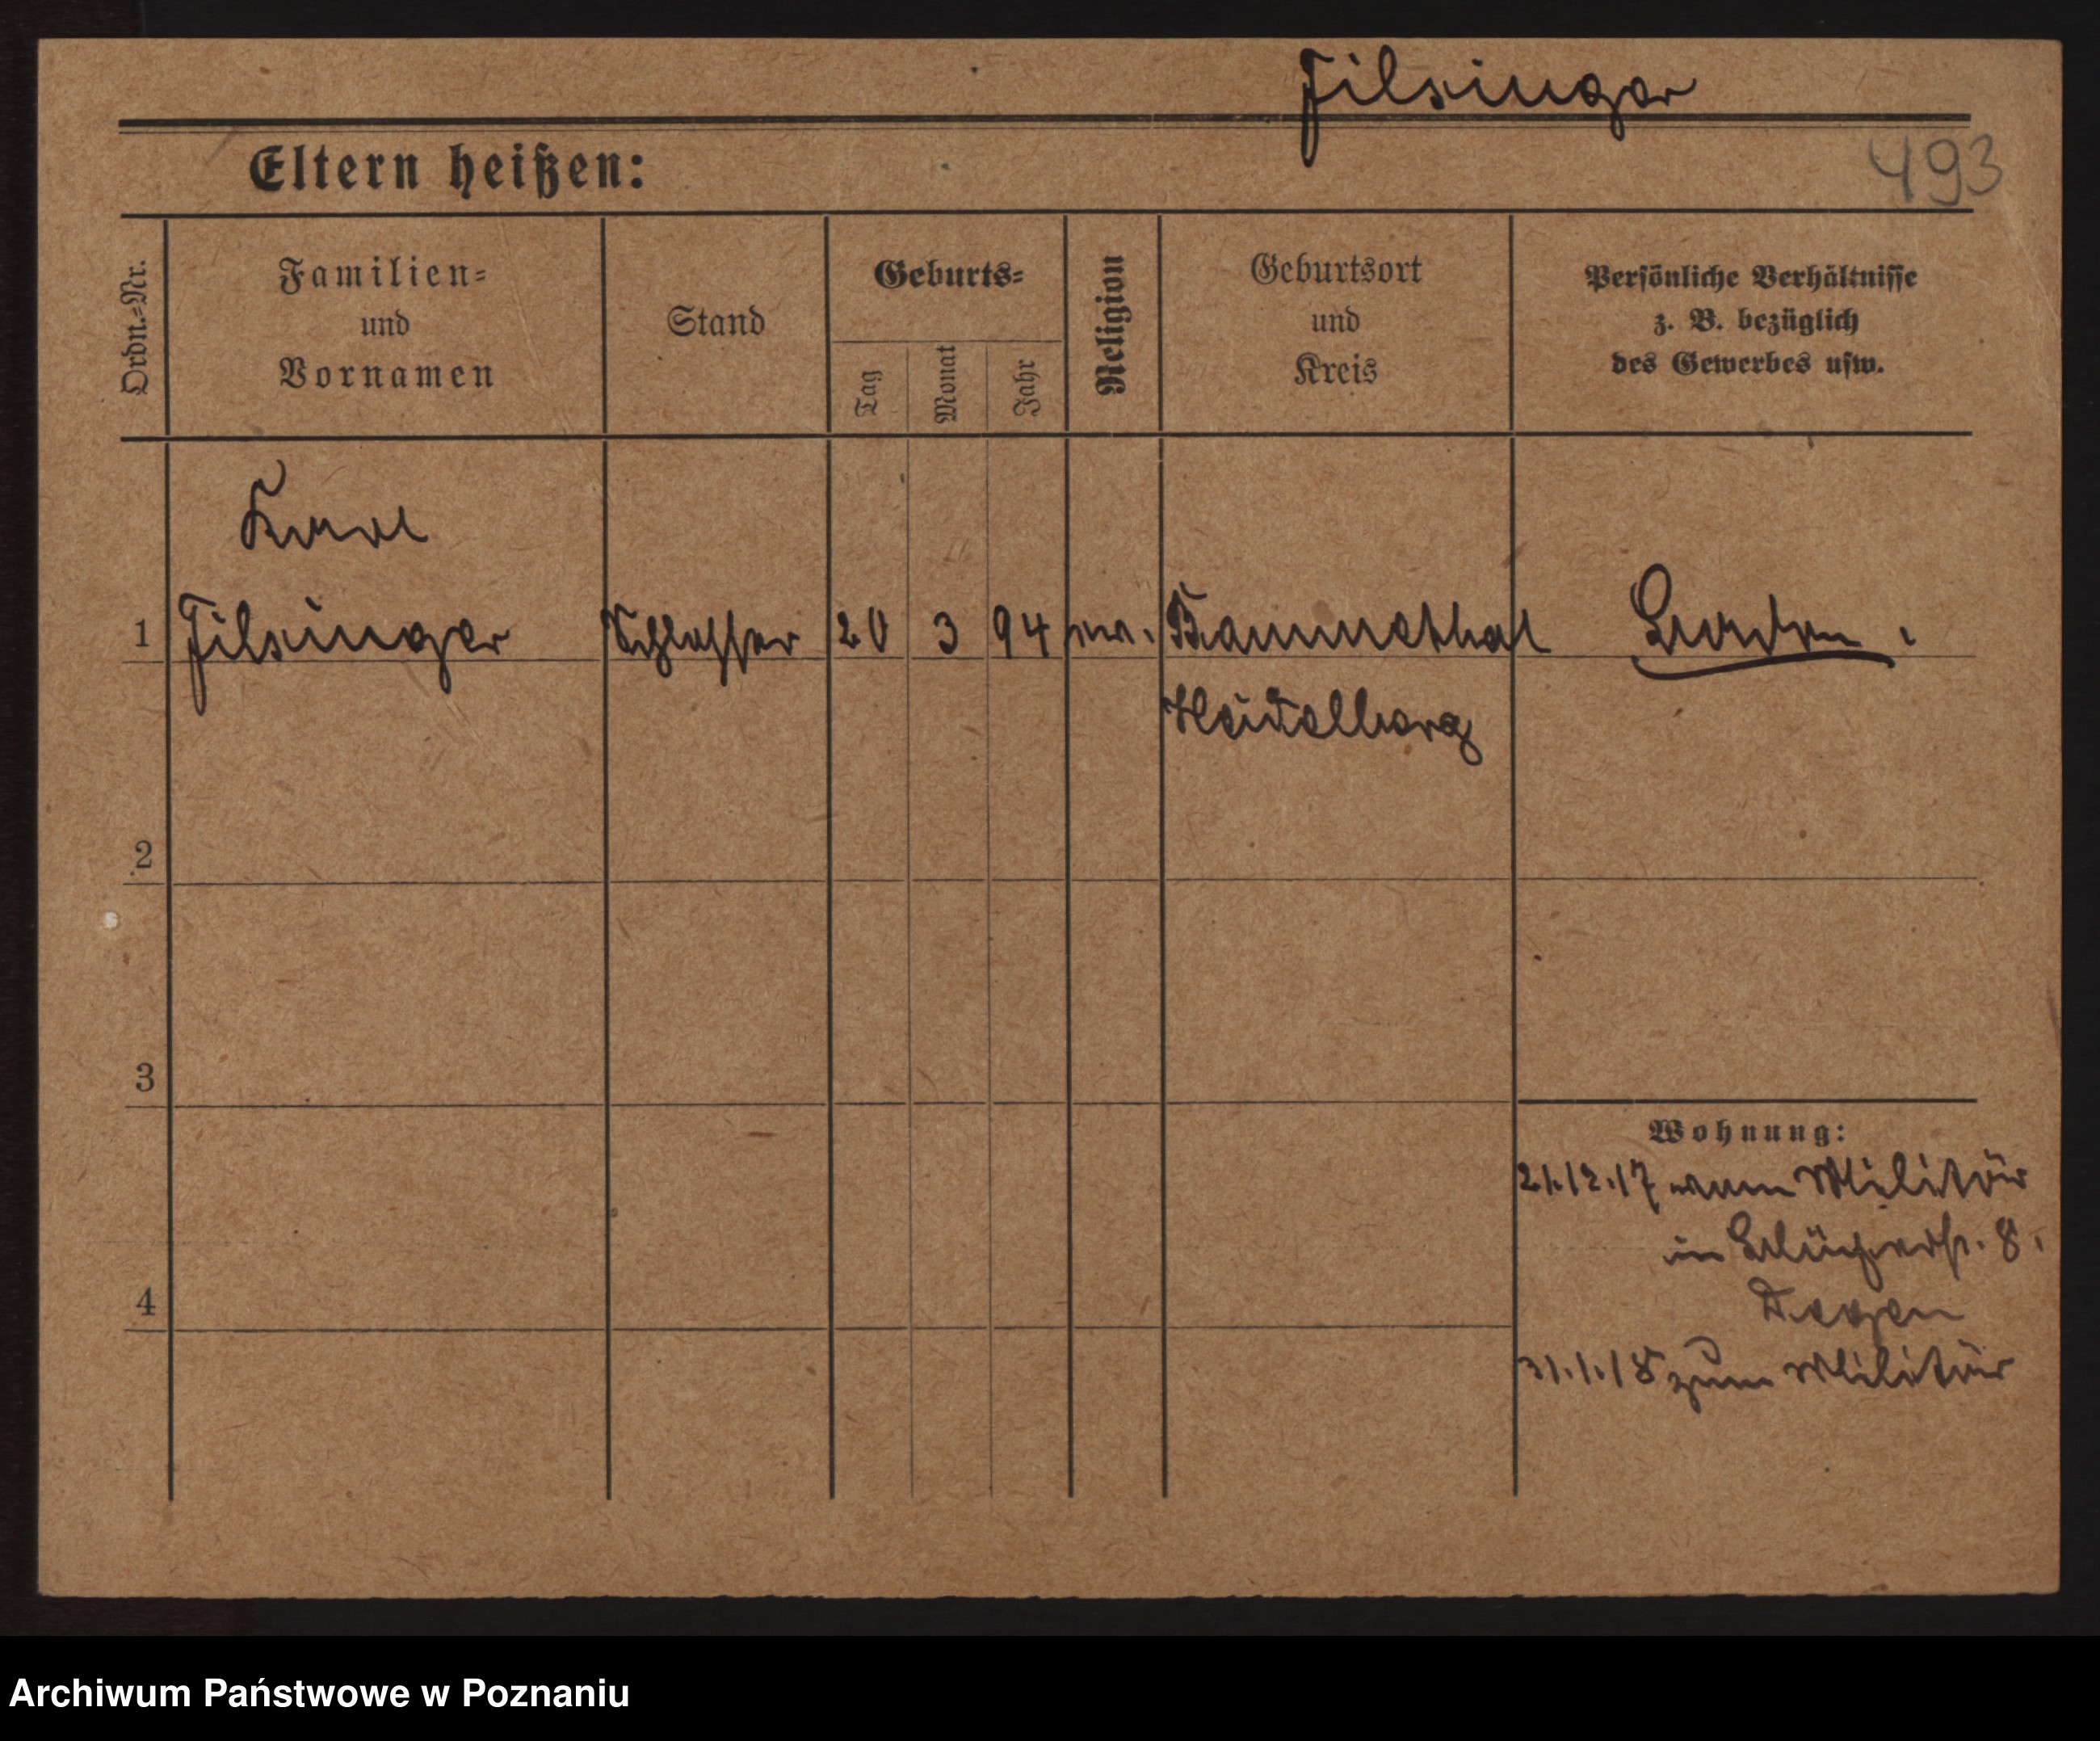 Filsinger
493
Eltern heißen:
Ordn.-Nr.
Familien-
und
Vornamen
Stand
Geburts-
Tag
Monat
Jahr
Religion
Geburtsort
und
Kreis
Persönliche Verhältnisse
z. B. bezüglich
des Gewerbes usw.
Karl
1 Filsinger Schlosser 20 3 94 ev. Bammethal Baden.
Heidelberg
2
3
Wohnung:
21.12.17 vom Militär
in Blücherstr. 8.
4
31.1.18 zum Militär
Archiwum Państwowe w Poznaniu